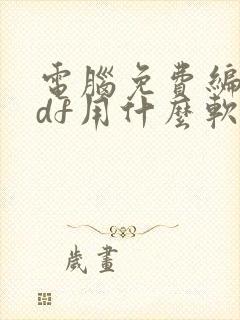 電腦免費編
df用什麼軟
歲畫